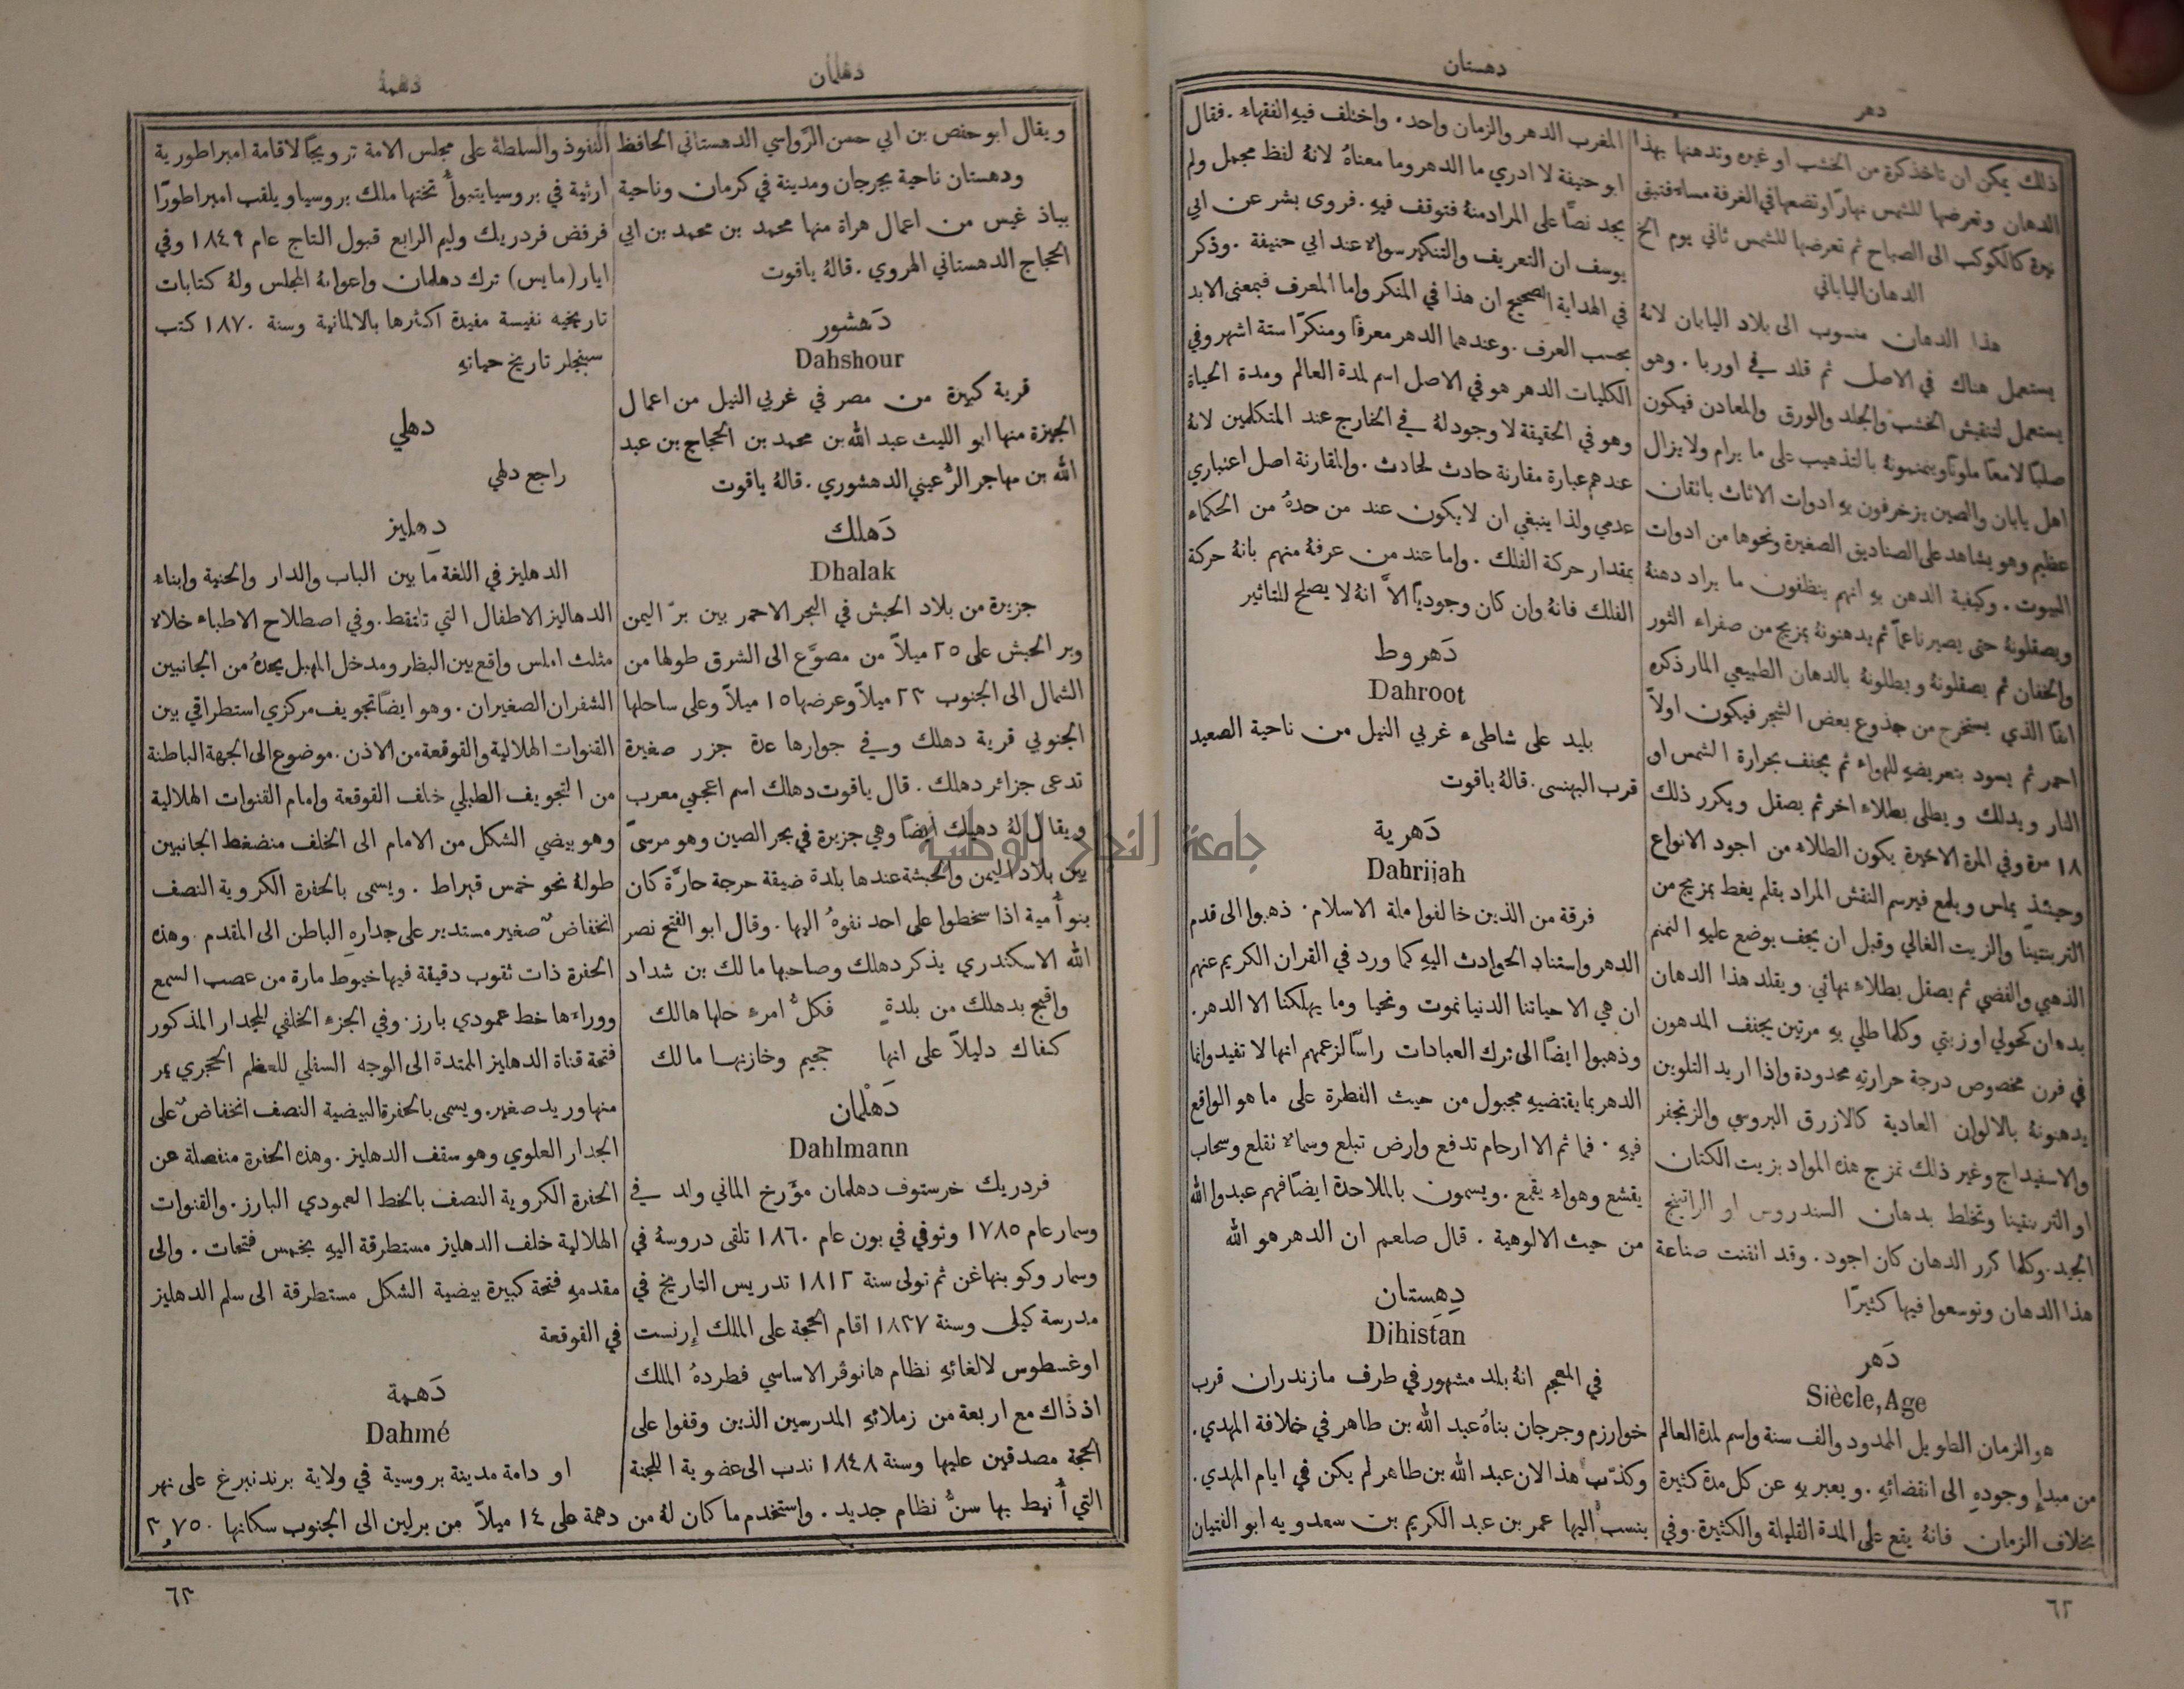 دهر
دهستان
ذلك يمكن ان تاخذ كرة من الخشب او غيره وتدهنها بهذا
الدهان وتعرضها للشمس نهارًا وتضعها في الغرفة مساء فتبقى
نيرة كالكوكب الى الصباح ثم تعرضها للشمس ثاني يوم الخ
الدهان الياباني
هذا الدهان منسوب الى بلاد اليابان لانهُ
يستعمل هناك في الاصل ثم قلد في اوربا . وهو
يستعمل لتنقيش الخشب والجلد والورق والمعادن فيكون
صلبًا لامعًا ملونًا وينمنمونهُ بالتذهيب على ما يرام ولا يزال
اهل يابان والصين يزخرفون به ادوات الاثاث باتقان
عظيم وهو يشاهد على الصناديق الصغيرة ونحوها من ادوات
البيوت . وكيفية الدهن بهِ انهم ينظفون ما يراد دهنهُ
ويصقلونهُ حتى يصير ناعمًا ثم يدهنونهُ بمزيج من صفراء الثور
والخفان ثم يصقلونهُ ويطلونهُ بالدهان الطبيعي المار ذكره
انفًا الذي يستخرج من جذوع بعض الشجر فيكون اولاً
احمر ثم يسود بتعريضهِ للهواء ثم يجفف بحرارة الشمس او
النار ويدلك ويطلى بطلاء اخر ثم يصقل ويكرر ذلك
١٨ مرة وفي المرة الاخيرة يكون الطلاء من اجود الانواع
وحينئذٍ يملس ويلمع فيرسم النقش المراد بقلم يغط بمزيج من
التربنتينا والزيت الغالي وقبل ان يجف يوضع عليهِ النمنم
الذهبي والفضي ثم يصقل بطلاء نهائي . ويقلد هذا الدهان
بدهان كحولي او زيتي وكلما طلي بهِ مرتين يجفف المدهون
في فرن مخصوص درجة حرارتهِ محدودة واذا اريد التلوين
يدهنونهُ بالالوان العادية كالازرق البروسي والزنجفر
والاسفيداج وغير ذلك تمزج هذه المواد بزيت الكتان
او التربنتينا وتخلط بدهان السندروس او الراتينج
الجيد . وكلما كرر الدهان كان اجود . وقد اتقنت صناعة
هذا الدهان وتوسعوا فيها كثيرًا
دَهر
Siècle, Age
هو الزمان الطويل الممدود والف سنة واسم لمدة العالم
من مبدإِ وجودهِ الى انقضائهِ . ويعبر بهِ عن كل مدة كثيرة
بخلاف الزمان فانهُ يقع على المدة القليلة والكثيرة . وفي
المغرب الدهر والزمان واحد . واختلف فيهِ الفقهاء . فقال
ابو حنيفة لا ادري ما الدهر وما معناهُ لانهُ لفظ مجمل ولم
يجد نصًّا على المراد منهُ فتوقف فيهِ . فروى بشر عن ابي
يوسف ان التعريف والتنكير سوالا عند ابي حنيفة . وذكر
في الهداية الصحيح ان هذا في المنكر واما المعرف فبمعنى الابد
بحسب العرف . وعندهما الدهر معرفًا ومنكرًا ستة اشهر وفي
الكليات الدهر هو في الاصل اسم لمدة العالم ومدة الحياة
وهو في الحقيقة لا وجود لهُ في الخارج عند المتكلمين لانهُ
عندهم عبارة مقارنة حادث لحادث . والمقارنة اصل اعتباري
عدمي ولذا ينبغي ان لا يكون عند من حدهُ من الحكماء
بمقدار حركة الفلك . واما عند من عرفهُ منهم بانهُ حركة
الفلك فانهُ وان كان وجوديًّا الاَّ انهُ لا يصلح للتاثير
دَهروط
Dahroot
بليد على شاطىء غربي النيل من ناحية الصعيد
قرب البهنسى . قالهُ ياقوت
دَهرية
Dahrijah
فرقة من الذين خالفوا ملة الاسلام . ذهبوا الى قدم
الدهر واستناد الحوادث اليهِ كما ورد في القران الكريم عنهم
ان هي الا حياتنا الدنيا نموت ونحيا وما يهلكنا الا الدهر .
وذهبوا ايضًا الى ترك العبادات راسًا لزعمهم انها لا تفيد وانما
الدهر بما يقتضيهِ مجبول من حيث الفطرة على ما هو الواقع
فيهِ . فما ثم الا ارحام تدفع وارض تبلع وسمالا تقلع وسحاب
يقشع وهواء يقمع . ويسمون بالملاحدة ايضًا فهم عبدوا الله
من حيث الالوهية . قال صلعم ان الدهر هو الله
دِهِستان
Dihistan
في المعجم انهُ بلد مشهور في طرف مازندران قرب
خوارزم وجرجان بناهُ عبد الله بن طاهر في خلافة المهدي .
وكذّب هذا لان عبد الله بن طاهر لم يكن في ايام المهدي .
ينسب اليها عمر بن عبد الكريم بن سعدويه ابو الفتيان
٦٢
دهلمان
دهمة
ويقال ابو حفص بن ابي حسن الرَّواسي الدهستاني الحافظ
ودهستان ناحية بجرجان ومدينة في كرمان وناحية
بباذ غيس من اعمال هراة منها محمد بن محمد بن ابي
الحجاج الدهستاني الهروي . قالهُ ياقوت
دَهشور
Dahshour
قرية كبيرة من مصر في غربي النيل من اعمال
الجيزة منها ابو الليث عبد الله بن محمد بن الحجاج بن عبد
الله بن مهاجر الرُّعيني الدهشوري . قالهُ ياقوت
دَهلك
Dhalak
جزيرة من بلاد الحبش في البحر الاحمر بين برّ اليمن
وبر الحبش على ٢٥ ميلاً من مصوَّع الى الشرق طولها من
الشمال الى الجنوب ٢٣ ميلاً وعرضها ١٥ ميلاً وعلى ساحلها
الجنوبي قرية دهلك وفي جوارها عدة جزر صغيرة
تدعى جزائر دهلك . قال ياقوت دهلك اسم اعجمي معرب
ويقال لهُ دهيك ايضًا وهي جزيرة في بحر الصين وهو مرسىً
بين بلاد اليمن والحبشة عندها بلدة ضيقة حرجة حارَّة كان
بنو أُمية اذا سخطوا على احد نفوهُ اليها . وقال ابو الفتح نصر
الله الاسكندري يذكر دهلك وصاحبها مالك بن شداد
واقبح بدهلك من بلدةٍ فكلُّ امرء حلها هالك
كفاك دليلاً على انها جحيم وخازنها مالك
دَهلْمان
Dahlmann
فردريك خرستوف دهلمان مؤَرخ الماني ولد في
وسمار عام ١٧٨٥ وتوفي في بون عام ١٨٦٠ تلقى دروسهُ في
وسمار وكوبنهاغن ثم تولى سنة ١٨١٢ تدريس التاريخ في
مدرسة كيل وسنة ١٨٣٧ اقام الحجة على الملك إِرنست
اوغسطوس لالغائهِ نظام هانوڤر الاساسي فطردهُ الملك
اذ ذاك مع اربعة من زملائهِ المدرسين الذين وقفوا على
الحجة مصدقين عليها وسنة ١٨٤٨ ندب الى عضوية اللجنة
التي أُنيط بها سنُّ نظام جديد . واستخدم ما كان لهُ من
النفوذ والسلطة على مجلس الامة ترويجًا لاقامة امبراطورية
ارثية في بروسيا يتبوأُ تختها ملك بروسيا ويلقب امبراطورًا
فرفض فردريك وليم الرابع قبول التاج عام ١٨٤٩ وفي
ايار (مايس) ترك دهلمان واعوانهُ المجلس ولهُ كتابات
تاريخيه نفيسة مفيدة اكثرها بالالمانية وسنة ١٨٧٠ كتب
سبنجلر تاريخ حياتهِ
دهلي
راجع دلهي
دِهليز
الدهليز في اللغة ما بين الباب والدار والحنية وابناء
الدهاليز الاطفال التي تلتقط . وفي اصطلاح الاطباء خلاء
مثلث املس واقع بين البظر ومدخل المهبل يحدهُ من الجانبين
الشفران الصغيران . وهو ايضًا تجويف مركزي استطراقي بين
القنوات الهلالية والقوقعة من الاذن . موضوع الى الجهة الباطنة
من التجويف الطبلي خلف القوقعة وامام القنوات الهلالية
وهو بيضي الشكل من الامام الى الخلف منضغط الجانبين
طولهُ نحو خمس قيراط . ويسمى بالحفرة الكروية النصف
انخفاضٌ صغير مستدير على جدارهِ الباطن الى المقدم . وهذه
الحفرة ذات ثقوب دقيقة فيها خيوط مارة من عصب السمع
ووراءها خط عمودي بارز . وفي الجزء الخلفي للجدار المذكور
فتحة قناة الدهليز الممتدة الى الوجه السفلي للعظم الحجري يمر
منها وريد صغير . ويسمى بالحفرة البيضية النصف انخفاضٌ على
الجدار العلوي وهو سقف الدهليز . وهذه الحفرة منفصلة عن
الحفرة الكروية النصف بالخط العمودي البارز . والقنوات
الهلالية خلف الدهليز مستطرقة اليهِ بخمس فتحات . والى
مقدمهِ فتحة كبيرة بيضية الشكل مستطرقة الى سلم الدهليز
في القوقعة
دَهمة
Dahmé
او دامة مدينة بروسية في ولاية برندنبرغ على نهر
دهمة على ١٤ ميلاً من برلين الى الجنوب سكانها ٣٫٧٥٠
٦٣
جامعة النجاح الوطنية